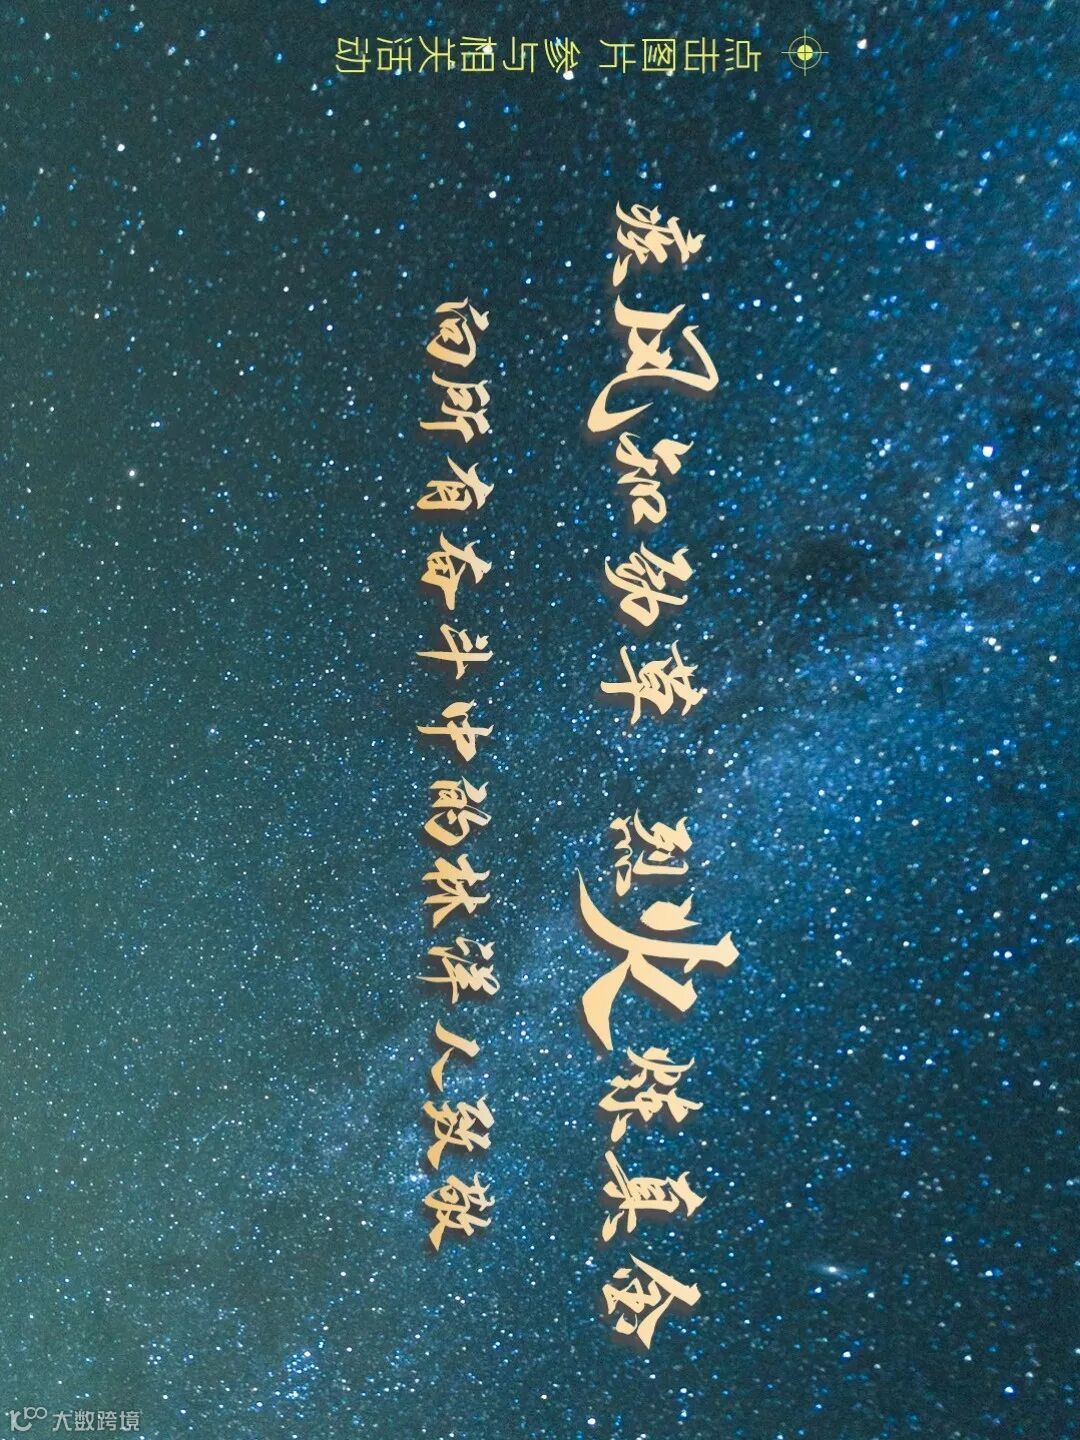 疾风知劲草 烈火炼真金
向所有奋斗中的林洋人致敬
点击图片 参与相关活动
大数跨境